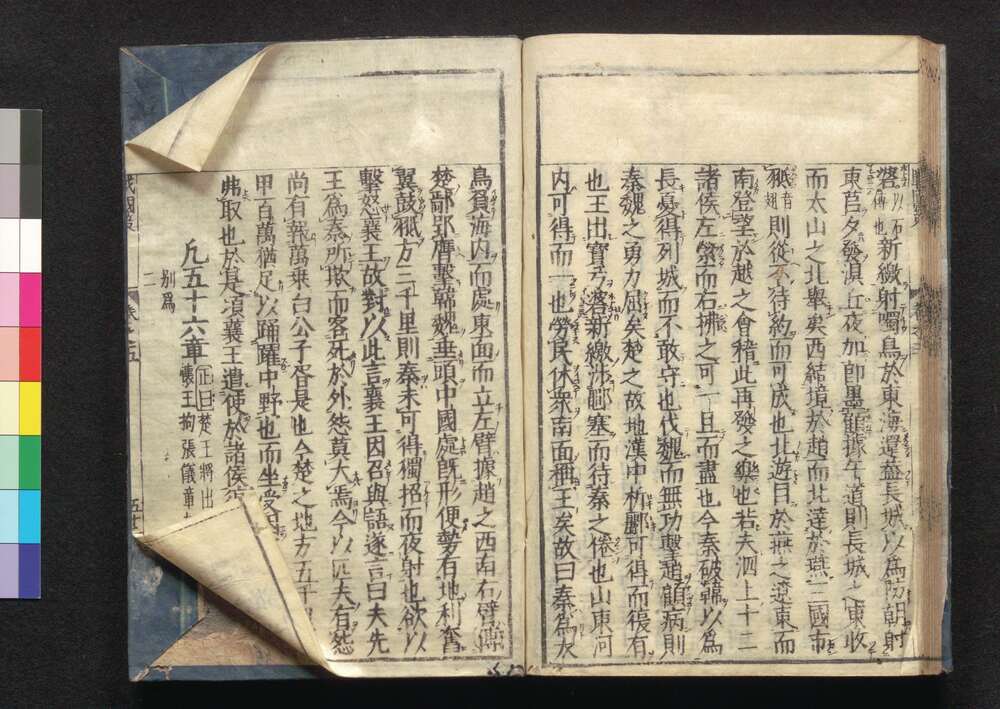 磻以石傅也新繳射噣鳥於東海還蓋長城以為防朝射
東莒夕發浿丘夜加即墨顧據午道則長城之東收
而太山之北舉矣西結境於趙而北達於燕三國布
䎗音翅則從不待約而可成也北遊目於燕之遼東而
南登望於越之會稽此再發之樂也若夫泗上十二
諸侯左縈而右拂之可一旦而盡也今秦破韓以為
長憂得列城而不敢守也伐魏而無功擊趙顧病則
秦魏之勇力屈矣楚之故地漢中析酈可得而復有
也王出寶弓磻新繳涉鄳塞而待秦之倦也山東河
内可得而一也勞民休衆南面稱王矣故曰秦為大
鳥負海内而處東面而立左臂據趙之西南右臂傅
楚鄢郢膺擊韓魏垂頭中國處既形便勢有地利奮
翼鼓䎗方三千里則秦未可得獨招而夜射也欲以
擊怒襄王故對以此言襄王因召與語遂言曰夫先
王為秦所欺而客死於外怨莫大焉今以匹夫有怨
尚有報萬乗白公子胥是也今楚之地方五千
甲百萬猶足以踊躍中野也而坐受
弗取也於是頃襄王遣使於諸侯
凡五十六章正曰楚王將出
懷王拘張儀章
别為
二
戰國策